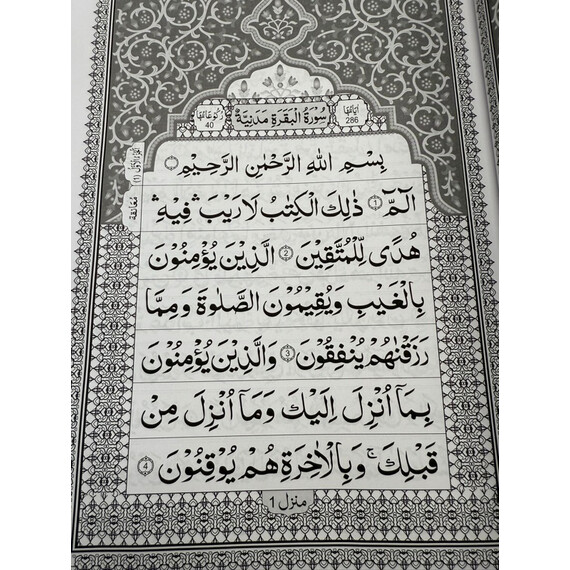 اٰيَاتُهَا 286
سُوْرَةُ الْبَقَرَةِ مَدَنِيَّةٌ
رُكُوْعَاتُهَا 40
بِسْمِ اللّٰهِ الرَّحْمٰنِ الرَّحِيْمِ
الٓمّٓ ١ ذٰلِكَ الْكِتٰبُ لَا رَيْبَ ۛ فِيْهِ ۛ
هُدًى لِّلْمُتَّقِيْنَ 2 الَّذِيْنَ يُؤْمِنُوْنَ
بِالْغَيْبِ وَيُقِيْمُوْنَ الصَّلٰوةَ وَمِمَّا
رَزَقْنٰهُمْ يُنْفِقُوْنَ 3 وَالَّذِيْنَ يُؤْمِنُوْنَ
بِمَآ اُنْزِلَ اِلَيْكَ وَمَآ اُنْزِلَ مِنْ
قَبْلِكَ ۚ وَبِالْاٰخِرَةِ هُمْ يُوْقِنُوْنَ 4
منزل 1
معانقة